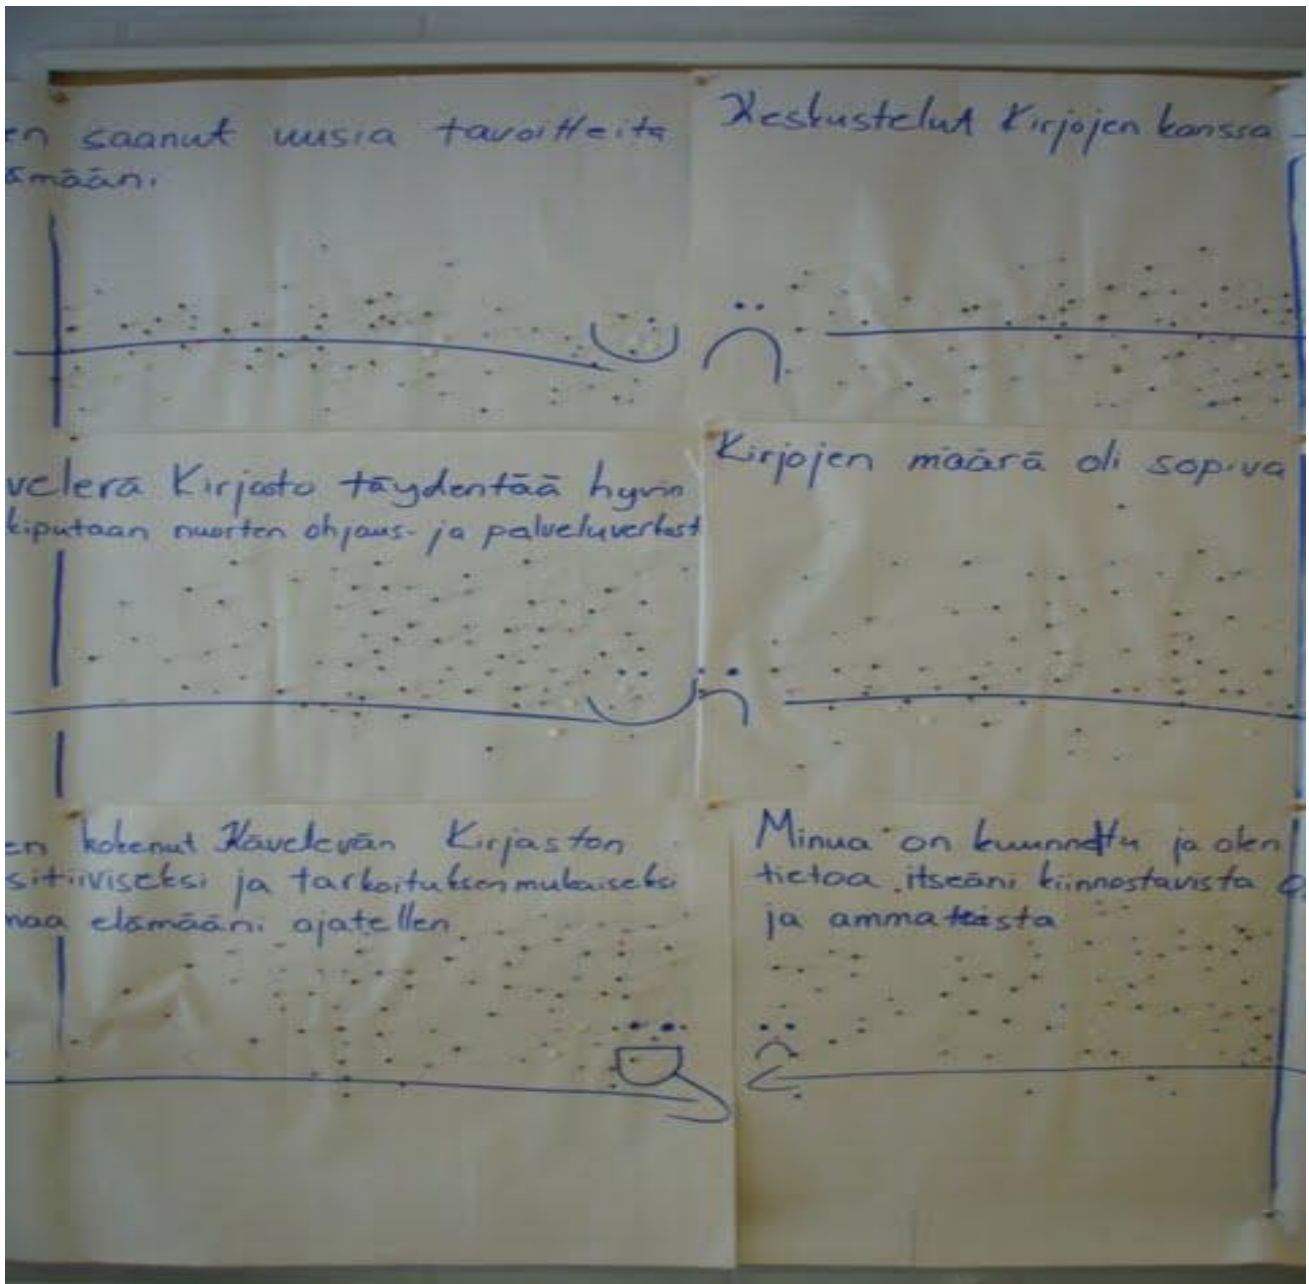 en saanut uusia tavoitteita
ämääni.
Keskustelut Kirjojen kanssa
velevä Kirjasto täydentää hyvin
kiputaan nuorten ohjaus- ja palveluverkost
Kirjojen määrä oli sopiva
en kokenut Kävelevän Kirjaston
sitiiviseksi ja tarkoituksenmukaiseksi
maa elämääni ajatellen
Minua on kuunneltu ja olen
tietoa itseäni kiinnostavista
ja ammateista